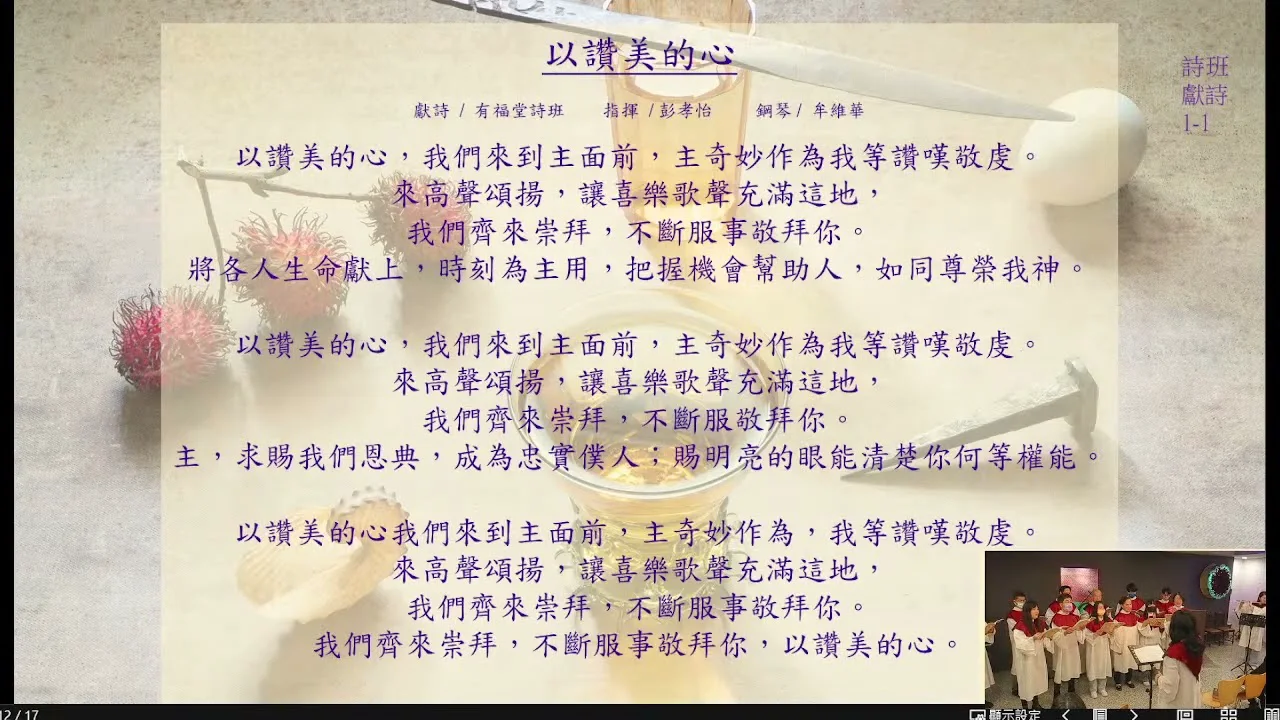 以讚美的心
獻詩 / 有福堂詩班 指揮 / 彭孝怡 鋼琴 / 牟維華
詩班
獻詩
1-1
以讚美的心，我們來到主面前，主奇妙作為我等讚嘆敬虔。
來高聲頌揚，讓喜樂歌聲充滿這地，
我們齊來崇拜，不斷服事敬拜你。
將各人生命獻上，時刻為主用，把握機會幫助人，如同尊榮我神。
以讚美的心，我們來到主面前，主奇妙作為我等讚嘆敬虔。
來高聲頌揚，讓喜樂歌聲充滿這地，
我們齊來崇拜，不斷服敬拜你。
主，求賜我們恩典，成為忠實僕人；賜明亮的眼能清楚你何等權能。
以讚美的心我們來到主面前，主奇妙作為，我等讚嘆敬虔。
來高聲頌揚，讓喜樂歌聲充滿這地，
我們齊來崇拜，不斷服事敬拜你。
我們齊來崇拜，不斷服事敬拜你，以讚美的心。
12 / 17 顯示設定